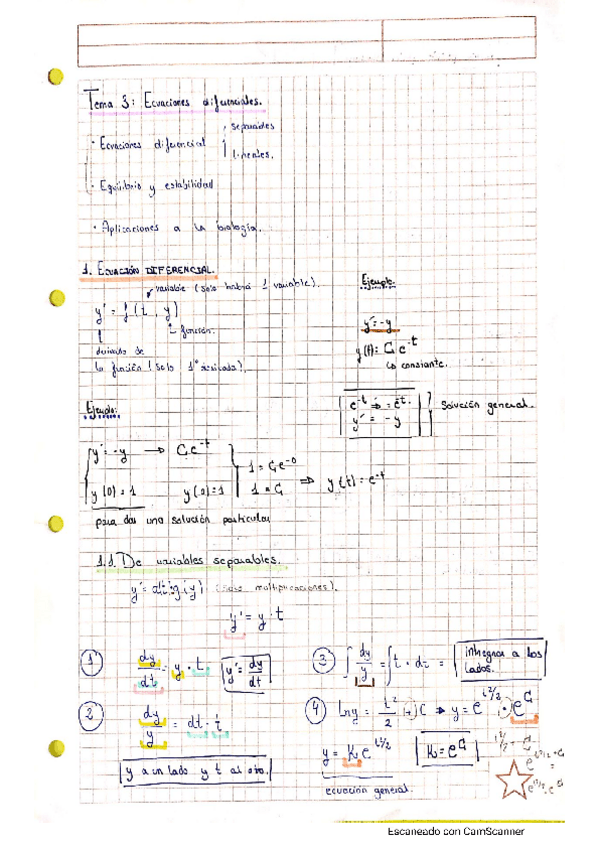 Tema 3: Ecuaciones diferenciales.
· Ecuaciones diferencial
separables
lineales.
· Equilibrio y estabilidad
· Aplicaciones a la biología.
1. ECUACIÓN DIFERENCIAL.
variable (solo habrá 1 variable).
y' = f(t, y)
función.
derivada de
la función (solo 1ª derivada).
Ejemplo:
y' = -y
y(t) = C₁e^-t
constante.
y' = -y
Solución general.
Ejemplo:
y' = -y → C₁e^-t
y(0) = 1 y(0) = 1
1 = C₁e^-0
1 = C₁
⇒ y(t) = e^-t
para dar una solución particular
1.1. De variables separables.
multiplicaciones).
y' = y · t
1 dy/dt = y · t y' = dy/dt
2 dy/y = dt · t
y a un lado y t al otro.
3 ∫ dy/y = ∫ t · dt = integrar a los
lados.
4 ln y = t²/2 (+) C ⇒ y = e^t²/2 · e^C₁
y = K e^t²/2 K = e^C₁
ecuación general.
t²/2 + C₁
e^t²/2 + C₁ =
e^t²/2 · e^C₁
Escaneado con CamScanner